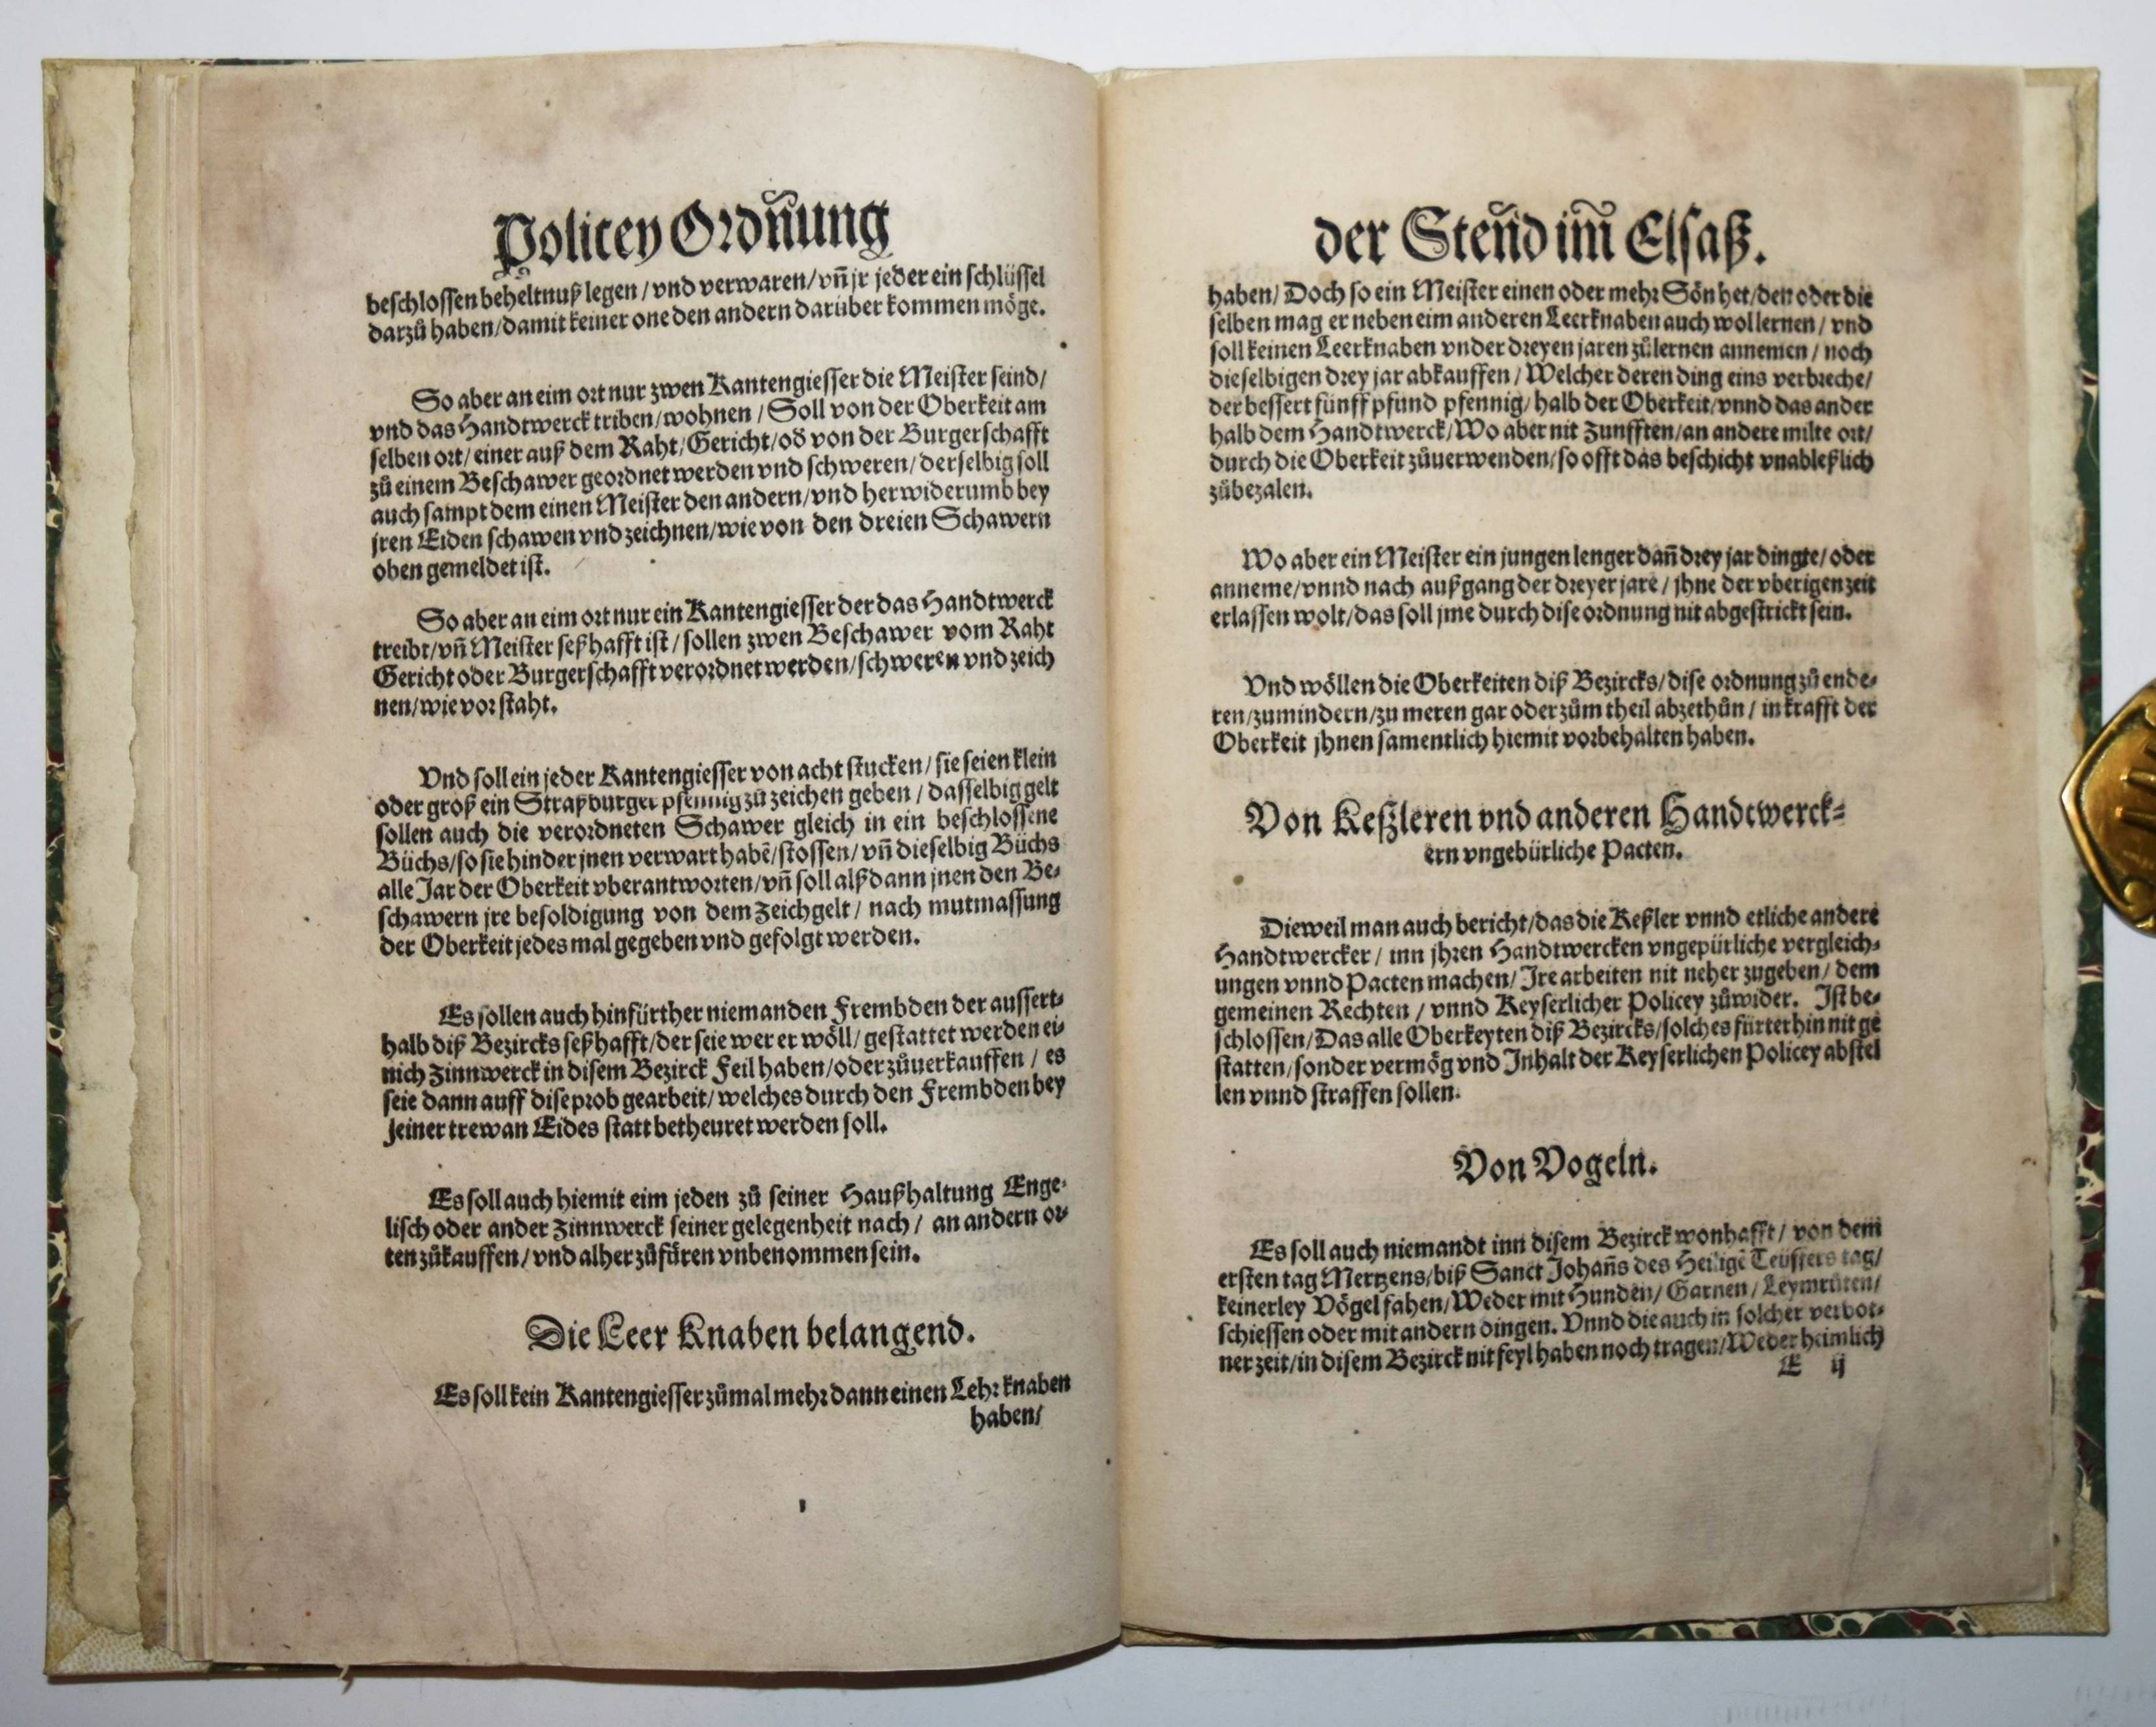 Policey Ordñung
beschlossen beheltnuß legen / vnd verwaren / vñ jr jeder ein schlüssel
darzů haben / damit keiner one den andern darüber kommen möge.
So aber an eim ort nur zwen Kantengiesser die Meister seind /
vnd das Handtwerck triben / wohnen / Soll von der Oberkeit am
selben ort / einer auß dem Raht / Gericht / oð von der Burgerschafft
zů einem Beschawer geordnet werden vnd schweren / derselbig soll
auch sampt dem einen Meister den andern / vnd herwiderumb bey
jren Eiden schawen vnd zeichnen / wie von den dreien Schawern
oben gemeldet ist.
So aber an eim ort nur ein Kantengiesser der das Handtwerck
treibt / vñ Meister seßhafft ist / sollen zwen Beschawer vom Raht
Gericht oder Burgerschafft verordnet werden / schweren vnd zeich
nen / wie vor staht.
Vnd soll ein jeder Kantengiesser von acht stucken / sie seien klein
oder groß ein Straßburger pfennig zů zeichen geben / dasselbig gelt
sollen auch die verordneten Schawer gleich in ein beschlossene
Büchs / so sie hinder jnen verwart habẽ / stossen / vñ dieselbig Büchs
alle Jar der Oberkeit vberantworten / vñ soll alßdann jnen den Be-
schawern jre besoldigung von dem Zeichgelt / nach mutmassung
der Oberkeit jedesmal gegeben vnd gefolgt werden.
Es sollen auch hinfürther niemanden Frembden der aussert-
halb diß Bezircks seßhafft / der seie wer er wöll / gestattet werden ei-
nich Zinnwerck in disem Bezirck Feil haben / oder zůuerkauffen / es
seie dann auff dise prob gearbeit / welches durch den Frembden bey
seiner trew an Eides statt betheuret werden soll.
Es soll auch hiemit eim jeden zů seiner Haußhaltung Enge-
lisch oder ander Zinnwerck seiner gelegenheit nach / an andern or-
ten zůkauffen / vnd alher zůfüren vnbenommen sein.
Die Leer Knaben belangend.
Es soll kein Kantengiesser zůmal mehr dann einen Lehrknaben
haben /
der Steñd im̃ Elsaß.
haben / Doch so ein Meister einen oder mehr Sön het / den oder die
selben mag er neben eim anderen Leerknaben auch wol lernen / vnd
soll keinen Leerknaben vnder dreyen jaren zůlernen annemen / noch
dieselbigen drey jar abkauffen / Welcher deren ding eins verbreche /
der bessert fünff pfund pfennig / halb der Oberkeit / vnnd das ander
halb dem Handtwerck / Wo aber nit Zunfften / an andere milte ort /
durch die Oberkeit zůuerwenden / so offt das beschicht vnableßlich
zůbezalen.
Wo aber ein Meister ein jungen lenger dañ drey jar dingte / oder
anneme / vnnd nach außgang der dreyer jarẽ / jhne der vberigen zeit
erlassen wolt / das soll jme durch dise ordnung nit abgestrickt sein.
Vnd wöllen die Oberkeiten diß Bezircks / dise ordnung zů ende-
ren / zumindern / zu meren gar oder zům theil abzethůn / in krafft der
Oberkeit jhnen samentlich hiemit vorbehalten haben.
Von Keßleren vnd anderen Handtwerck-
ern vngebürliche Pacten.
Dieweil man auch bericht / das die Keßler vnnd etliche andere
Handtwercker / inn jhren Handtwercken vngepürliche vergleich-
ungen vnnd Pacten machen / Jre arbeiten nit neher zugeben / dem
gemeinen Rechten / vnnd Keyserlicher Policey zůwider. Ist be-
schlossen / Das alle Oberkeyten diß Bezircks / solches fürterhin nit ge
statten / sonder vermög vnd Inhalt der Keyserlichen Policey abstel
len vnnd straffen sollen.
Von Vogeln.
Es soll auch niemandt inn disem Bezirck wonhafft / von dem
ersten tag Mertzens / biß Sanct Johañs des Heiligẽ Teüffers tag /
keinerley Vögel fahen / Weder mit Hunden / Garnen / Leymrůten /
schiessen oder mit andern dingen. Vnnd die auch in solcher verbot-
ner zeit / in disem Bezirck nit feyl haben noch tragen / Weder heimlich
E ij